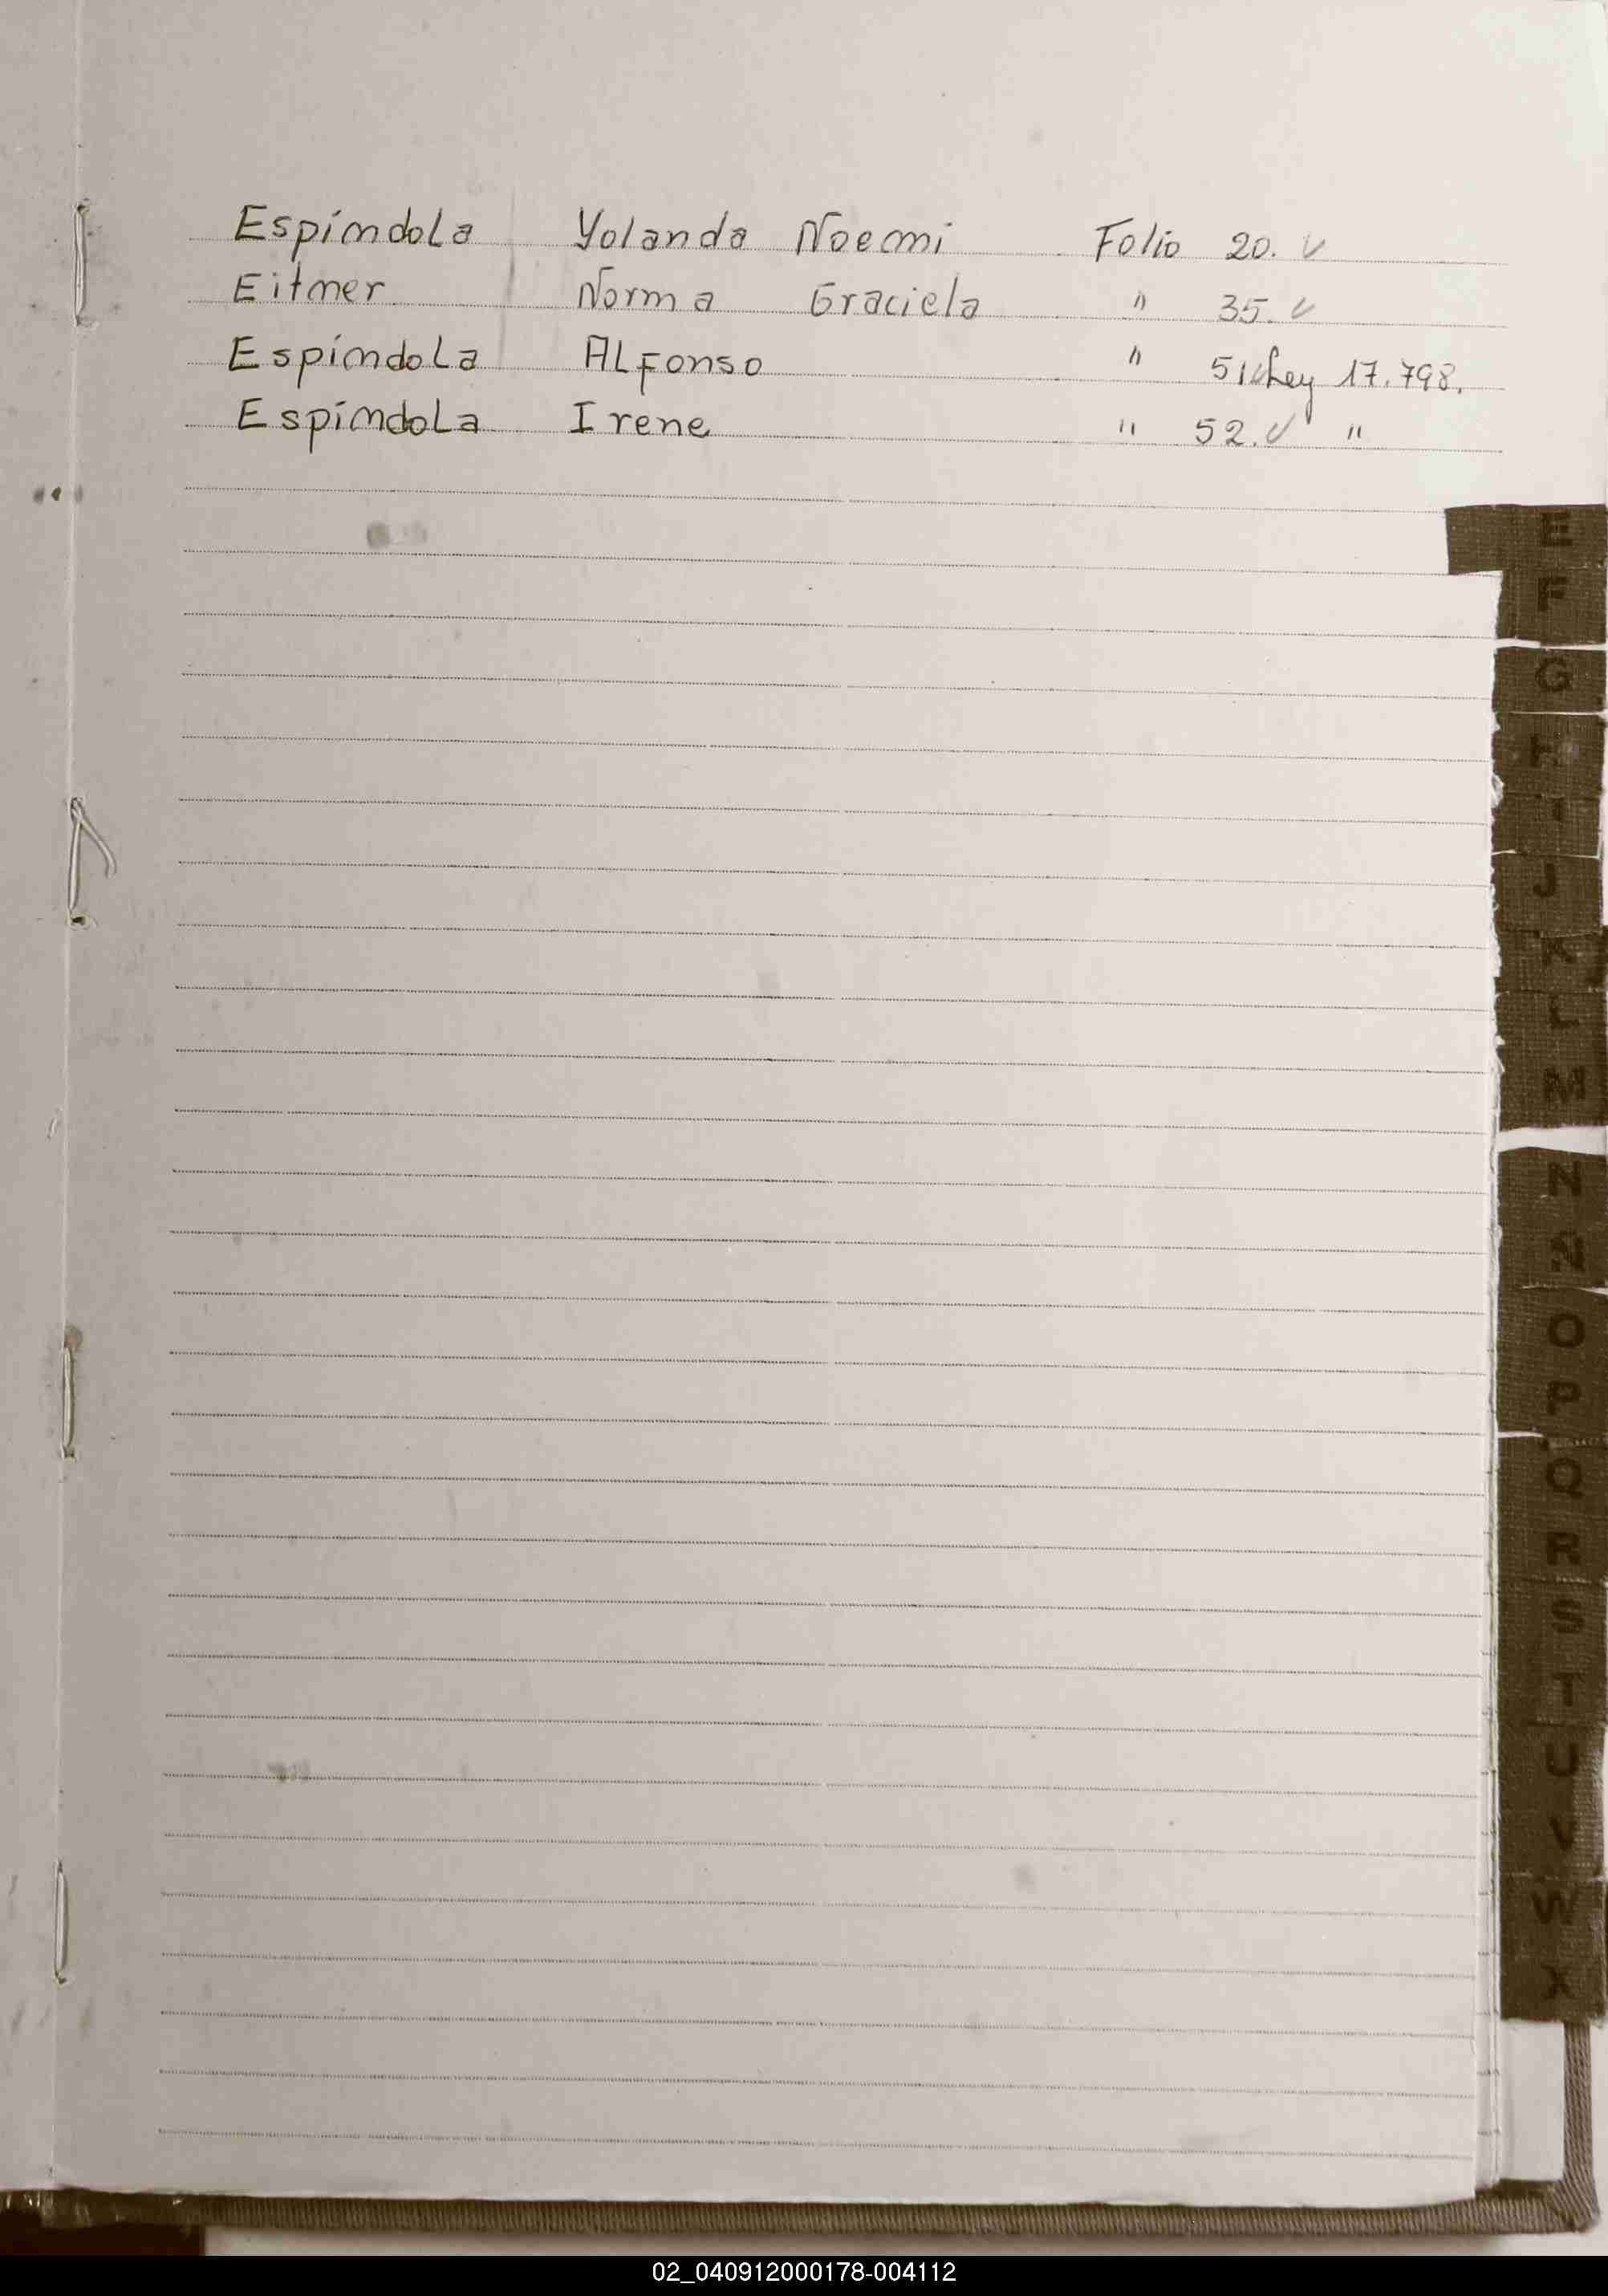 Espíndola Yolanda Noemi Folio 20. ✓
Eitner Norma Graciela " 35. ✓
Espíndola Alfonso " 51 ✓ Ley 17.798.
Espíndola Irene " 52. ✓ "
E
F
G
H
I
J
K
L
M
N
Ñ
O
P
Q
R
S
T
U
V
W
X
02_040912000178-004112